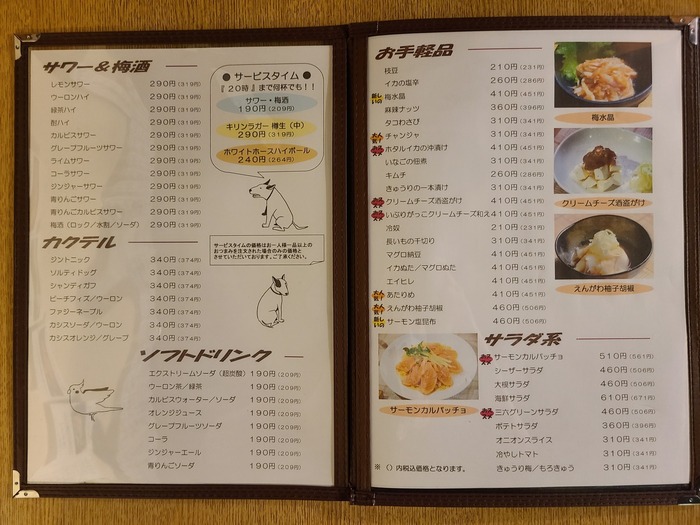 サワー&梅酒
レモンサワー 290円(319円)
ウーロンハイ 290円(319円)
緑茶ハイ 290円(319円)
酎ハイ 290円(319円)
カルピスサワー 290円(319円)
グレープフルーツサワー 290円(319円)
ライムサワー 290円(319円)
コーラサワー 290円(319円)
ジンジャーサワー 290円(319円)
青りんごサワー 290円(319円)
青りんごカルピスサワー 290円(319円)
梅酒(ロック/水割/ソーダ) 290円(319円)
● サービスタイム ●
『20時』まで何杯でも!!
サワー・梅酒
190円(209円)
キリンラガー 樽生(中)
290円(319円)
ホワイトホースハイボール
240円(264円)
サービスタイムの価格はお一人様一品以上の
おつまみを注文された場合のみの価格と
させていただいております。ご了承ください。
カクテル
ジントニック 340円(374円)
ソルティドッグ 340円(374円)
シャンディガフ 340円(374円)
ピーチフィズ/ウーロン 340円(374円)
ファジーネーブル 340円(374円)
カシスソーダ/ウーロン 340円(374円)
カシスオレンジ/グレープ 340円(374円)
ソフトドリンク
エクストリームソーダ(超炭酸) 190円(209円)
ウーロン茶/緑茶 190円(209円)
カルピスウォーター/ソーダ 190円(209円)
オレンジジュース 190円(209円)
グレープフルーツソーダ 190円(209円)
コーラ 190円(209円)
ジンジャーエール 190円(209円)
青りんごソーダ 190円(209円)
お手軽品
枝豆 210円(231円)
イカの塩辛 260円(286円)
梅水晶 410円(451円)
麻辣ナッツ 360円(396円)
タコわさび 310円(341円)
チャンジャ 310円(341円)
ホタルイカの沖漬け 410円(451円)
いなごの佃煮 310円(341円)
キムチ 260円(286円)
きゅうりの一本漬け 310円(341円)
クリームチーズ酒盗がけ 410円(451円)
いぶりがっこクリームチーズ和え 410円(451円)
冷奴 210円(231円)
長いもの千切り 310円(341円)
マグロ納豆 410円(451円)
イカぬた/マグロぬた 410円(451円)
エイヒレ 410円(451円)
あたりめ 410円(451円)
えんがわ柚子胡椒 460円(506円)
サーモン塩昆布 460円(506円)
梅水晶
クリームチーズ酒盗がけ
えんがわ柚子胡椒
サーモンカルパッチョ
サラダ系
サーモンカルパッチョ 510円(561円)
シーザーサラダ 460円(506円)
大根サラダ 460円(506円)
海鮮サラダ 610円(671円)
三六グリーンサラダ 460円(506円)
ポテトサラダ 360円(396円)
オニオンスライス 310円(341円)
冷やしトマト 310円(341円)
きゅうり梅/もろきゅう 310円(341円)
※()内税込価格となります。